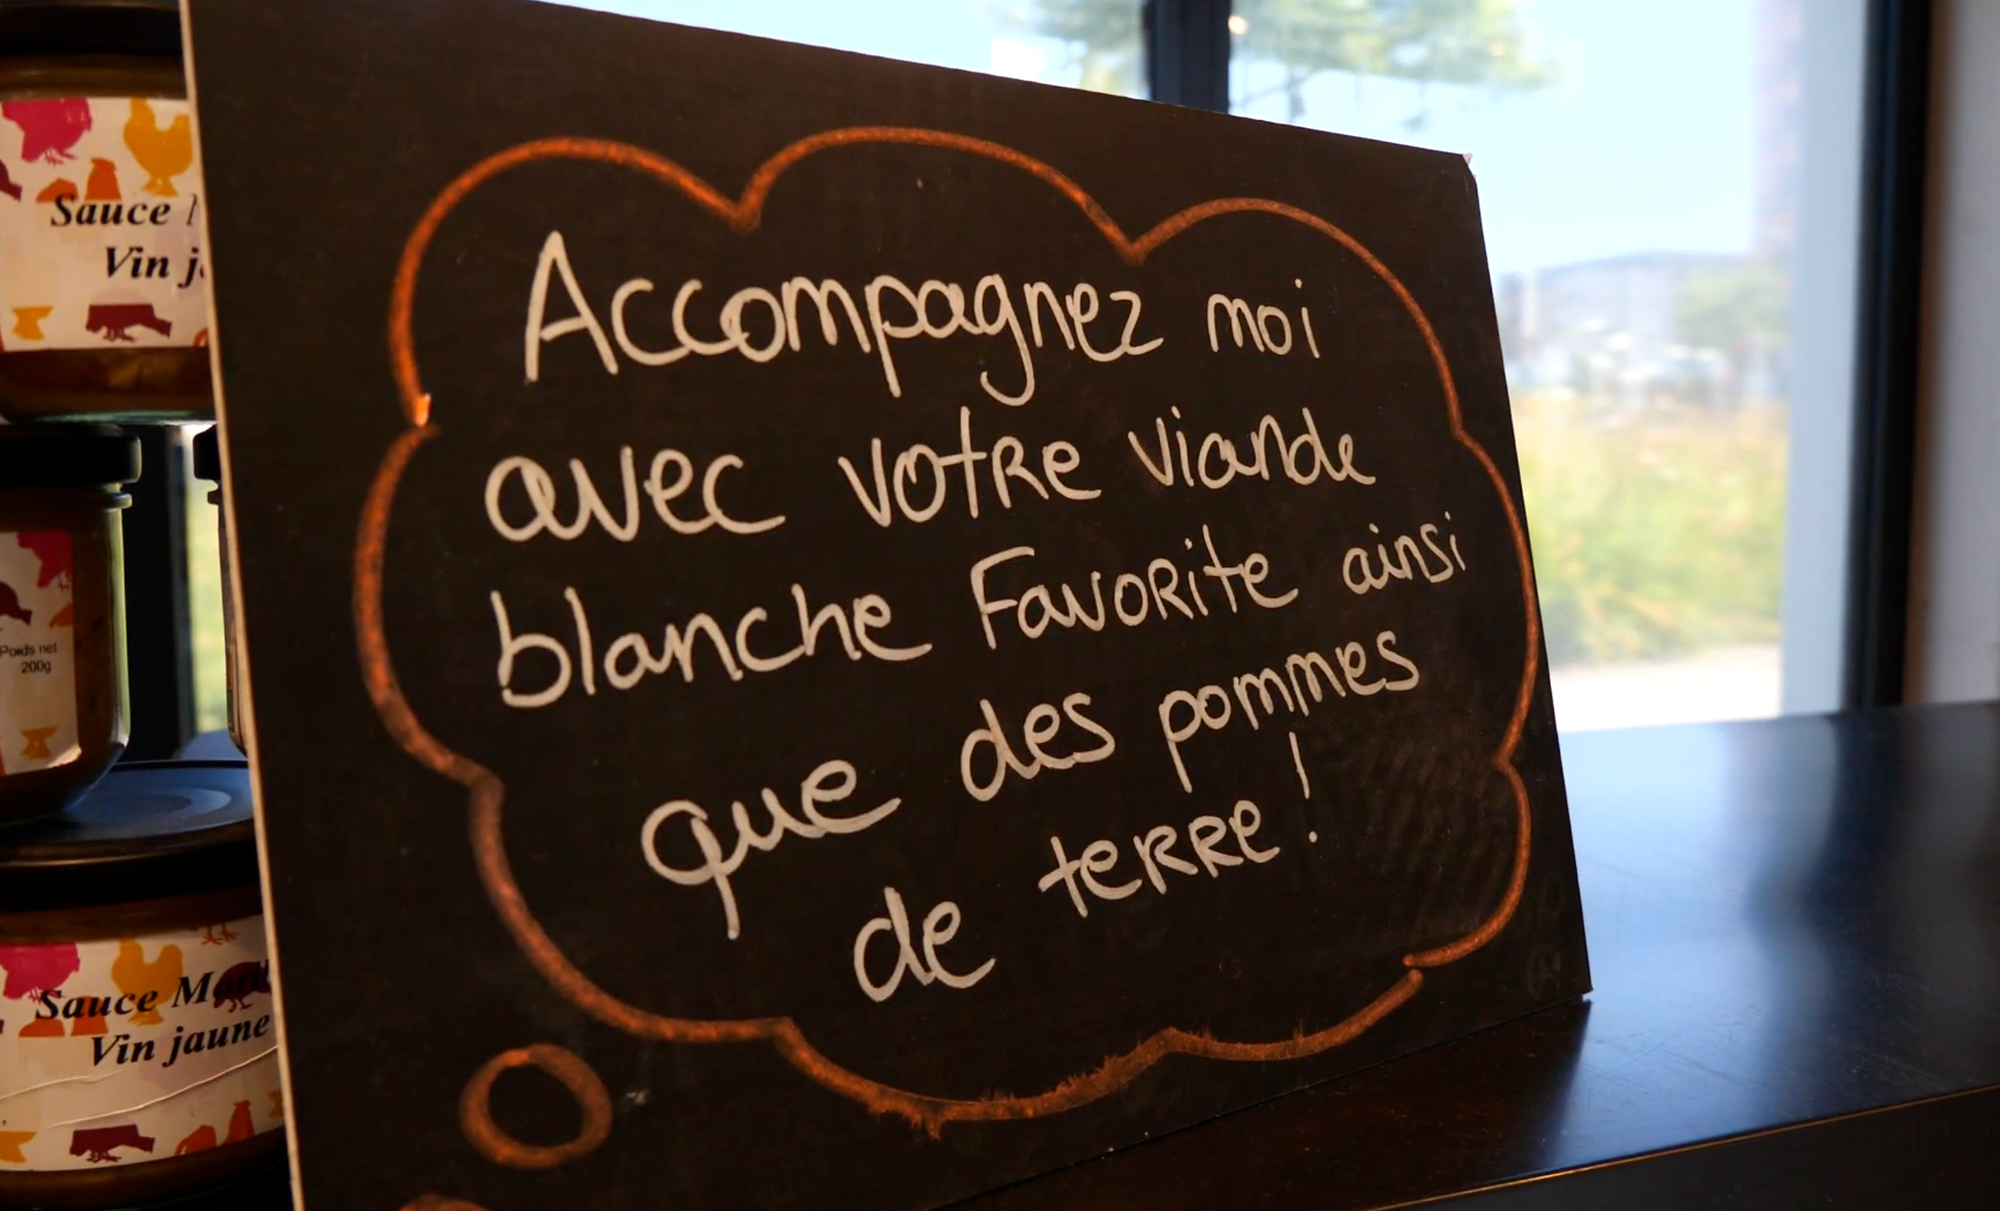 Sauce
Vin
Poids net
200g
Sauce
Vin jaune
Accompagnez moi
avec votre viande
blanche Favorite ainsi
que des pommes
de terre !